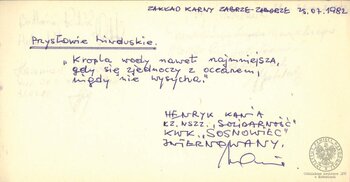 ZAKŁAD KARNY ZABRZE-ZABORZE 25.07.1982
Przysłowie hinduskie.
„Kropla wody nawet najmniejsza,
gdy się zjednoczy z oceanem,
nigdy nie wysycha."
HENRYK KANIA
KZ. NSZZ. „SOLIDARNOŚĆ"
KWK. „SOSNOWIEC"
INTERNOWANY.